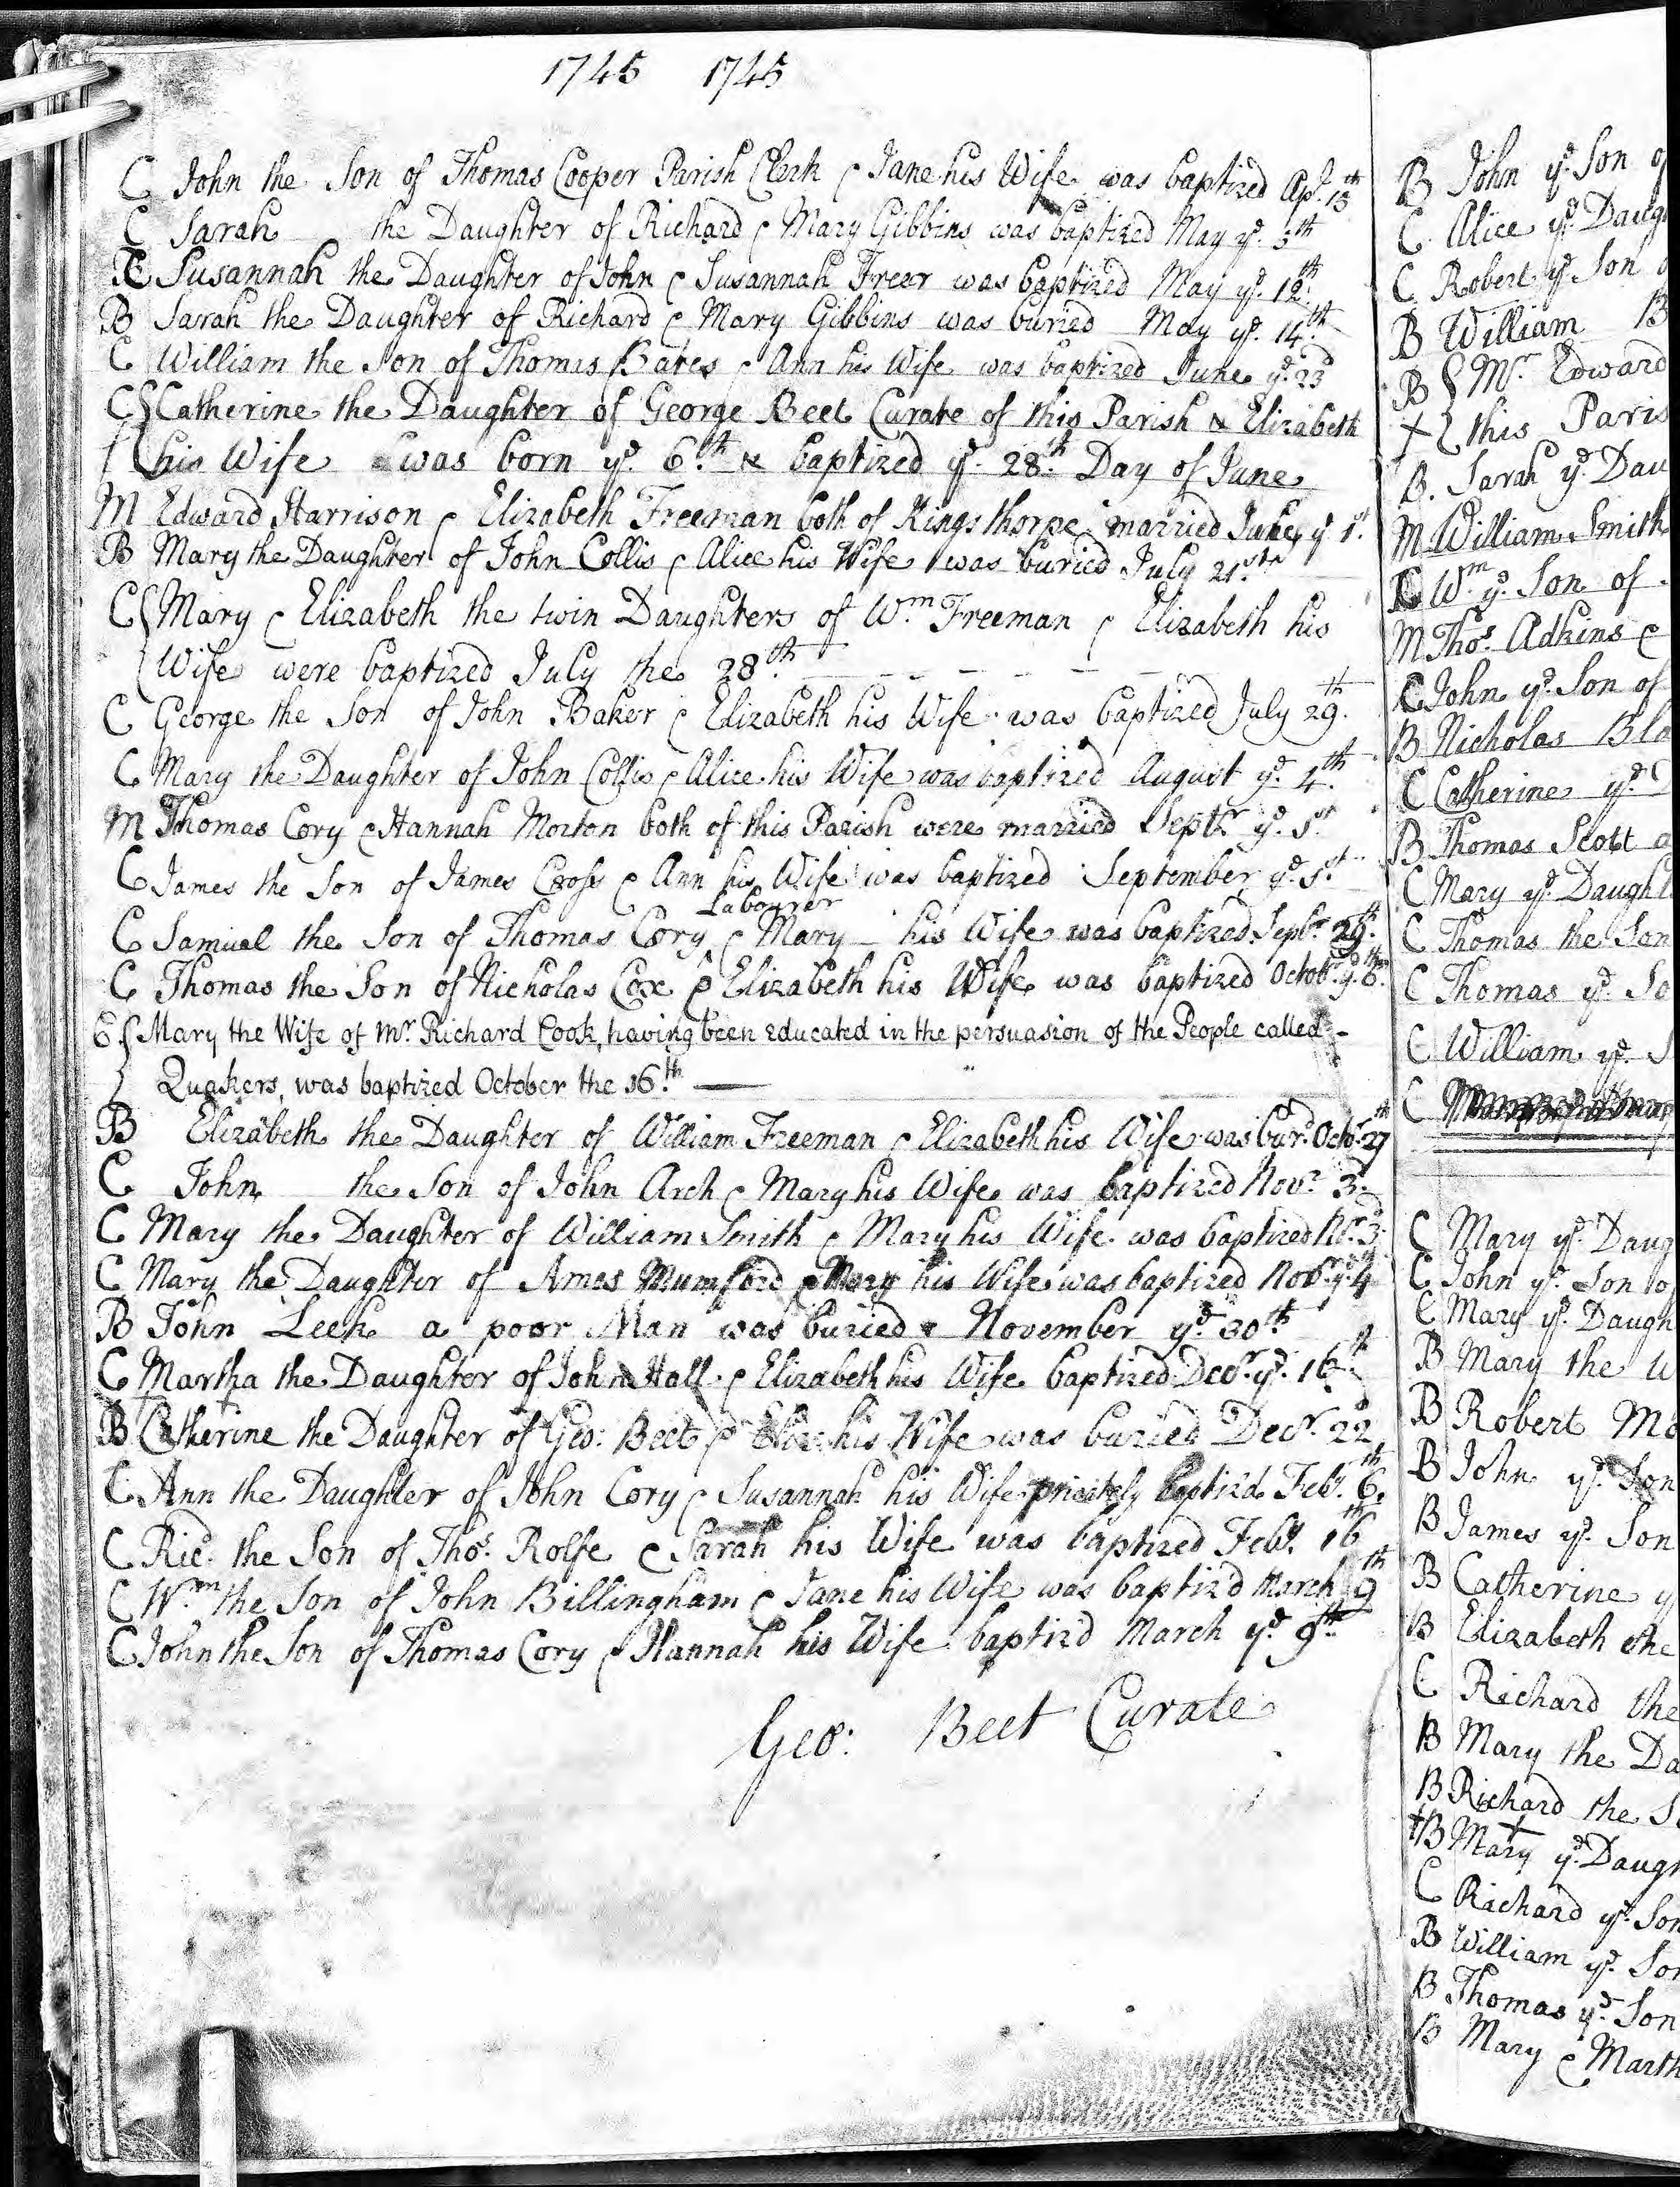 1745 1745
C John the Son of Thomas Cooper Parish Clerk & Jane his Wife was baptized Apl. 15th
C Sarah the Daughter of Richard & Mary Gibbins was baptized May ye. 5th
C Susannah the Daughter of John & Susannah Frear was baptized May ye. 12th.
B Sarah the Daughter of Richard & Mary Gibbins was buried May ye. 14th.
C William the Son of Thomas Bates & Ann his Wife was baptized June ye. 23d
C Catherine the Daughter of George Beet Curate of this Parish & Elizabeth
his Wife was born ye. 6th. & baptized ye. 28th. Day of June
M Edward Harrison & Elizabeth Freeman both of Kingsthorpe married June ye. 1st.
B Mary the Daughter of John Collis & Alice his Wife was buried July 21st.
C Mary & Elizabeth the twin Daughters of Wm. Freeman & Elizabeth his
Wife were baptized July the 28th.
C George the Son of John Baker & Elizabeth his Wife was baptized July 29th.
C Mary the Daughter of John Collis & Alice his Wife was baptized August ye. 4th.
M Thomas Cory & Hannah Morton both of this Parish were married Septr ye. 1st.
C James the Son of James Cross & Ann his Wife was baptized September ye. 1st.
Labourer
C Samuel the Son of Thomas Cory & Mary his Wife was baptized Septr. 29th.
C Thomas the Son of Nicholas Cox & Elizabeth his Wife was baptized Octobr. ye. 6th.
C Mary the Wife of Mr. Richard Cook, having been educated in the persuasion of the People called
Quakers, was baptized October the 16th.
B Elizabeth the Daughter of William Freeman & Elizabeth his Wife was burd. Octo. 27th
C John the Son of John Arch & Mary his Wife was baptized Novr. 3d.
C Mary the Daughter of William Smith & Mary his Wife was baptized Nr. 3d.
C Mary the Daughter of Amos Mumford & Mary his Wife was baptized Novr. ye. 4
B John Leek a poor Man was buried November ye. 30th.
C Martha the Daughter of John Hall & Elizabeth his Wife baptized Decr. ye. 16th
B Catherine the Daughter of Geo: Beet & Eliz: his Wife was buried Decr. 22
C Ann the Daughter of John Cory & Susannah his Wife privately baptizd. Feby. 6th.
C Ricd. the Son of Thos. Rolfe & Sarah his Wife was baptized Feby. 16th
C Wm the Son of John Billingham & Jane his Wife was baptiz'd March 9th
C John the Son of Thomas Cory & Hannah his Wife baptizd March ye 9th
Geo: Beet Curate
B John ye. Son of
C Alice ye. Daug
C Robert ye. Son
B William B
B Mr. Edward
+ this Paris
B. Sarah ye. Dau
M William Smith
C Wm ye. Son of
M Thos. Adkins &
C John ye. Son of
B Nicholas Bla
C Catherine ye. D
B Thomas Scott a
C Mary ye. Daught
C Thomas the Son
C Thomas ye. So
C William ye. S
C
C Mary ye. Daug
C John ye. Son of
C Mary ye. Daugh
B Mary the W
B Robert Mo
B John ye. Son
B James ye. Son
B Catherine y
B Elizabeth the
C Richard the
B Mary the Da
B Richard the S
B Mary ye. Daugh
C Richard ye. Son
B William ye. Son
B Thomas ye. Son
B Mary & Marth